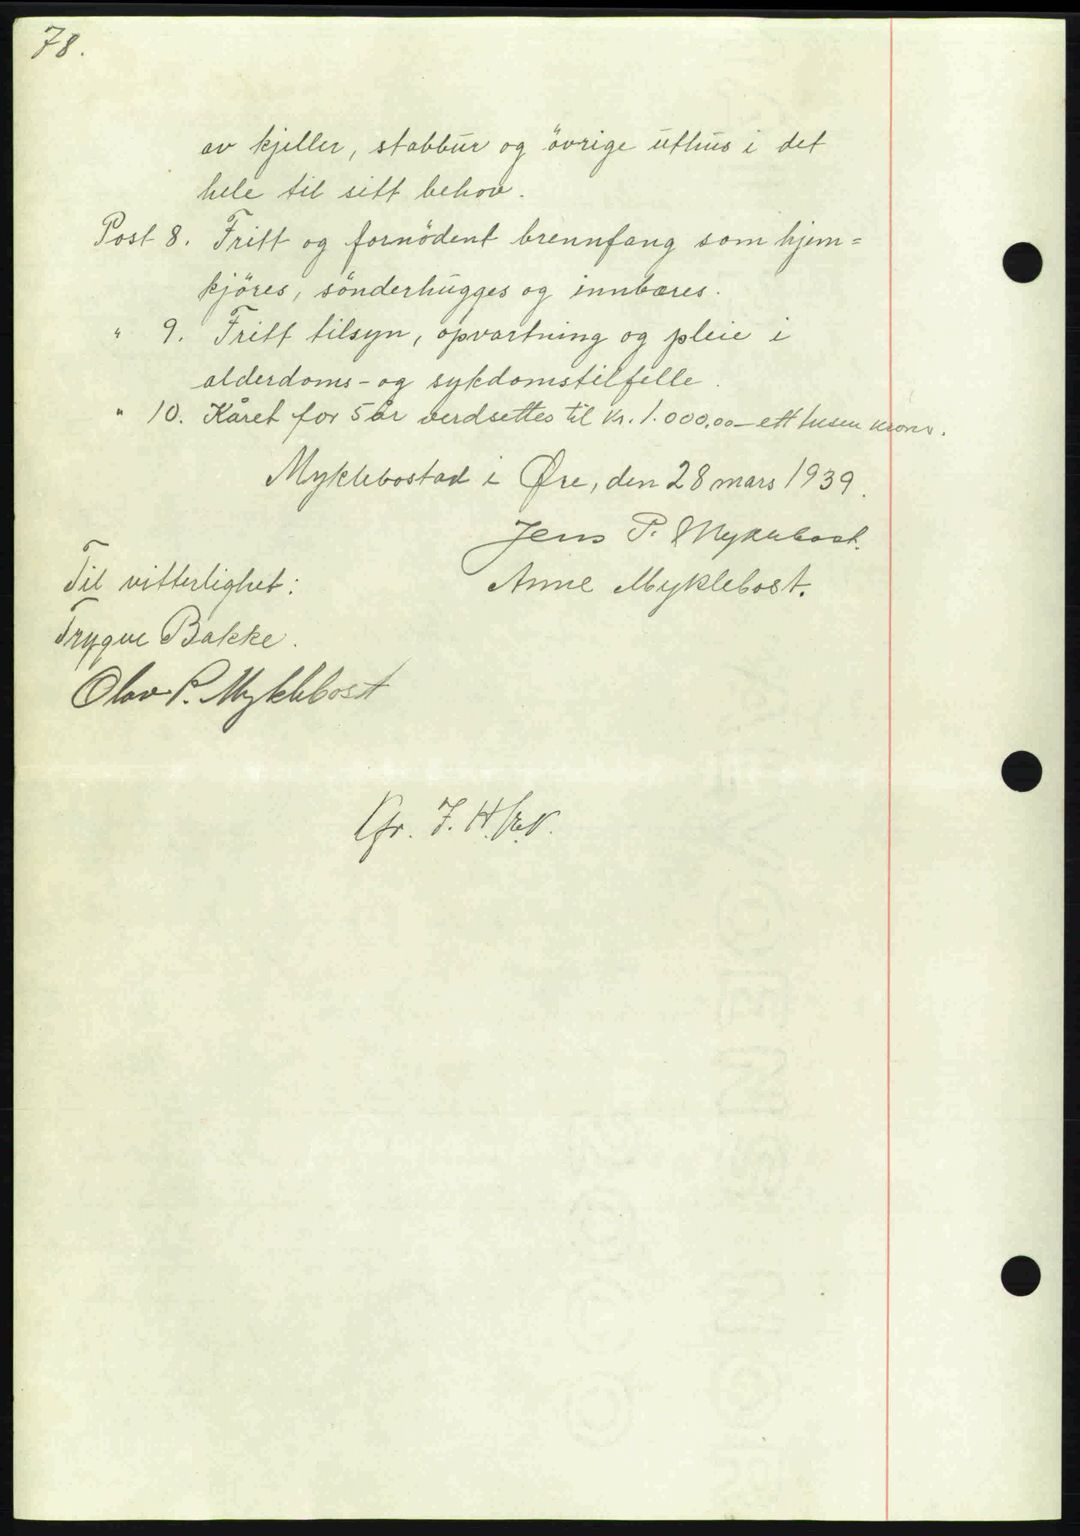 78.
av kjeller, stabbur og övrige uthus i det
hele til sitt behov.
Post 8. Fritt og fornödent brennfang som hjem=
kjöres, sönderhugges og innbæres.
" 9. Fritt tilsyn, opvartning og pleie i
alderdoms- og sykdomstilfelle.
" 10. Kåret for 5 år verdsettes til kr. 1.000,00 - ett tusen kroner.
Myklebostad i Øre, den 28 mars 1939.
Jens P. Myklebost.
Til vitterlighet:
Anne Myklebost.
Trygve Bakke.
Olav P. Myklebost